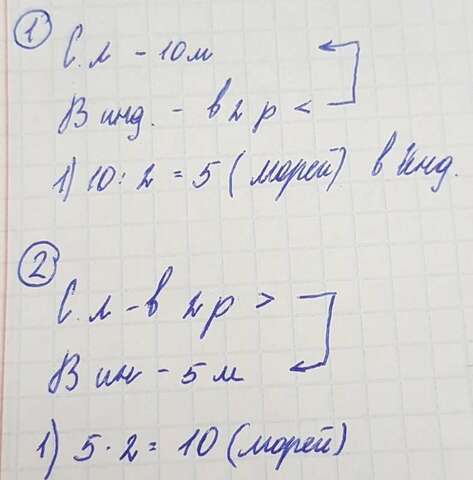 1
С. л - 10 м
В инд. - в 2 р <
1) 10 : 2 = 5 (морей) в Инд.
2
С. л - в 2 р >
В ин - 5 м
1) 5 · 2 = 10 (морей)